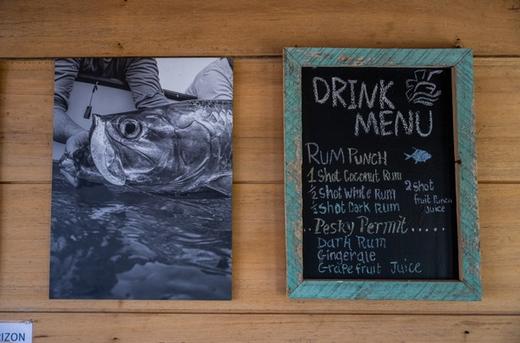 DRINK
MENU
RUM PUNCH
1 Shot Coconut Rum
½ Shot White Rum
½ Shot Dark Rum
2 Shot
fruit Punch
Juice
..Pesky Permit.....
Dark Rum
Gingerale
Grapefruit Juice
IZON